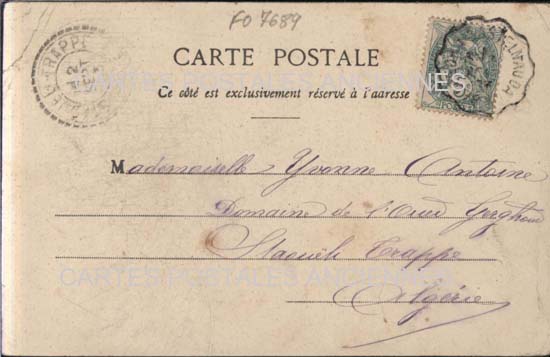 FO 7689
CARTE POSTALE
CARTES POSTALES ANCIENNES
Ce côté est exclusivement réservé à l'adresse
Mademoiselle Yvonne Antoine
Domaine de l'Oued
Staouëli Trappe
CARTES POSTALES ANCIENNES
Algérie